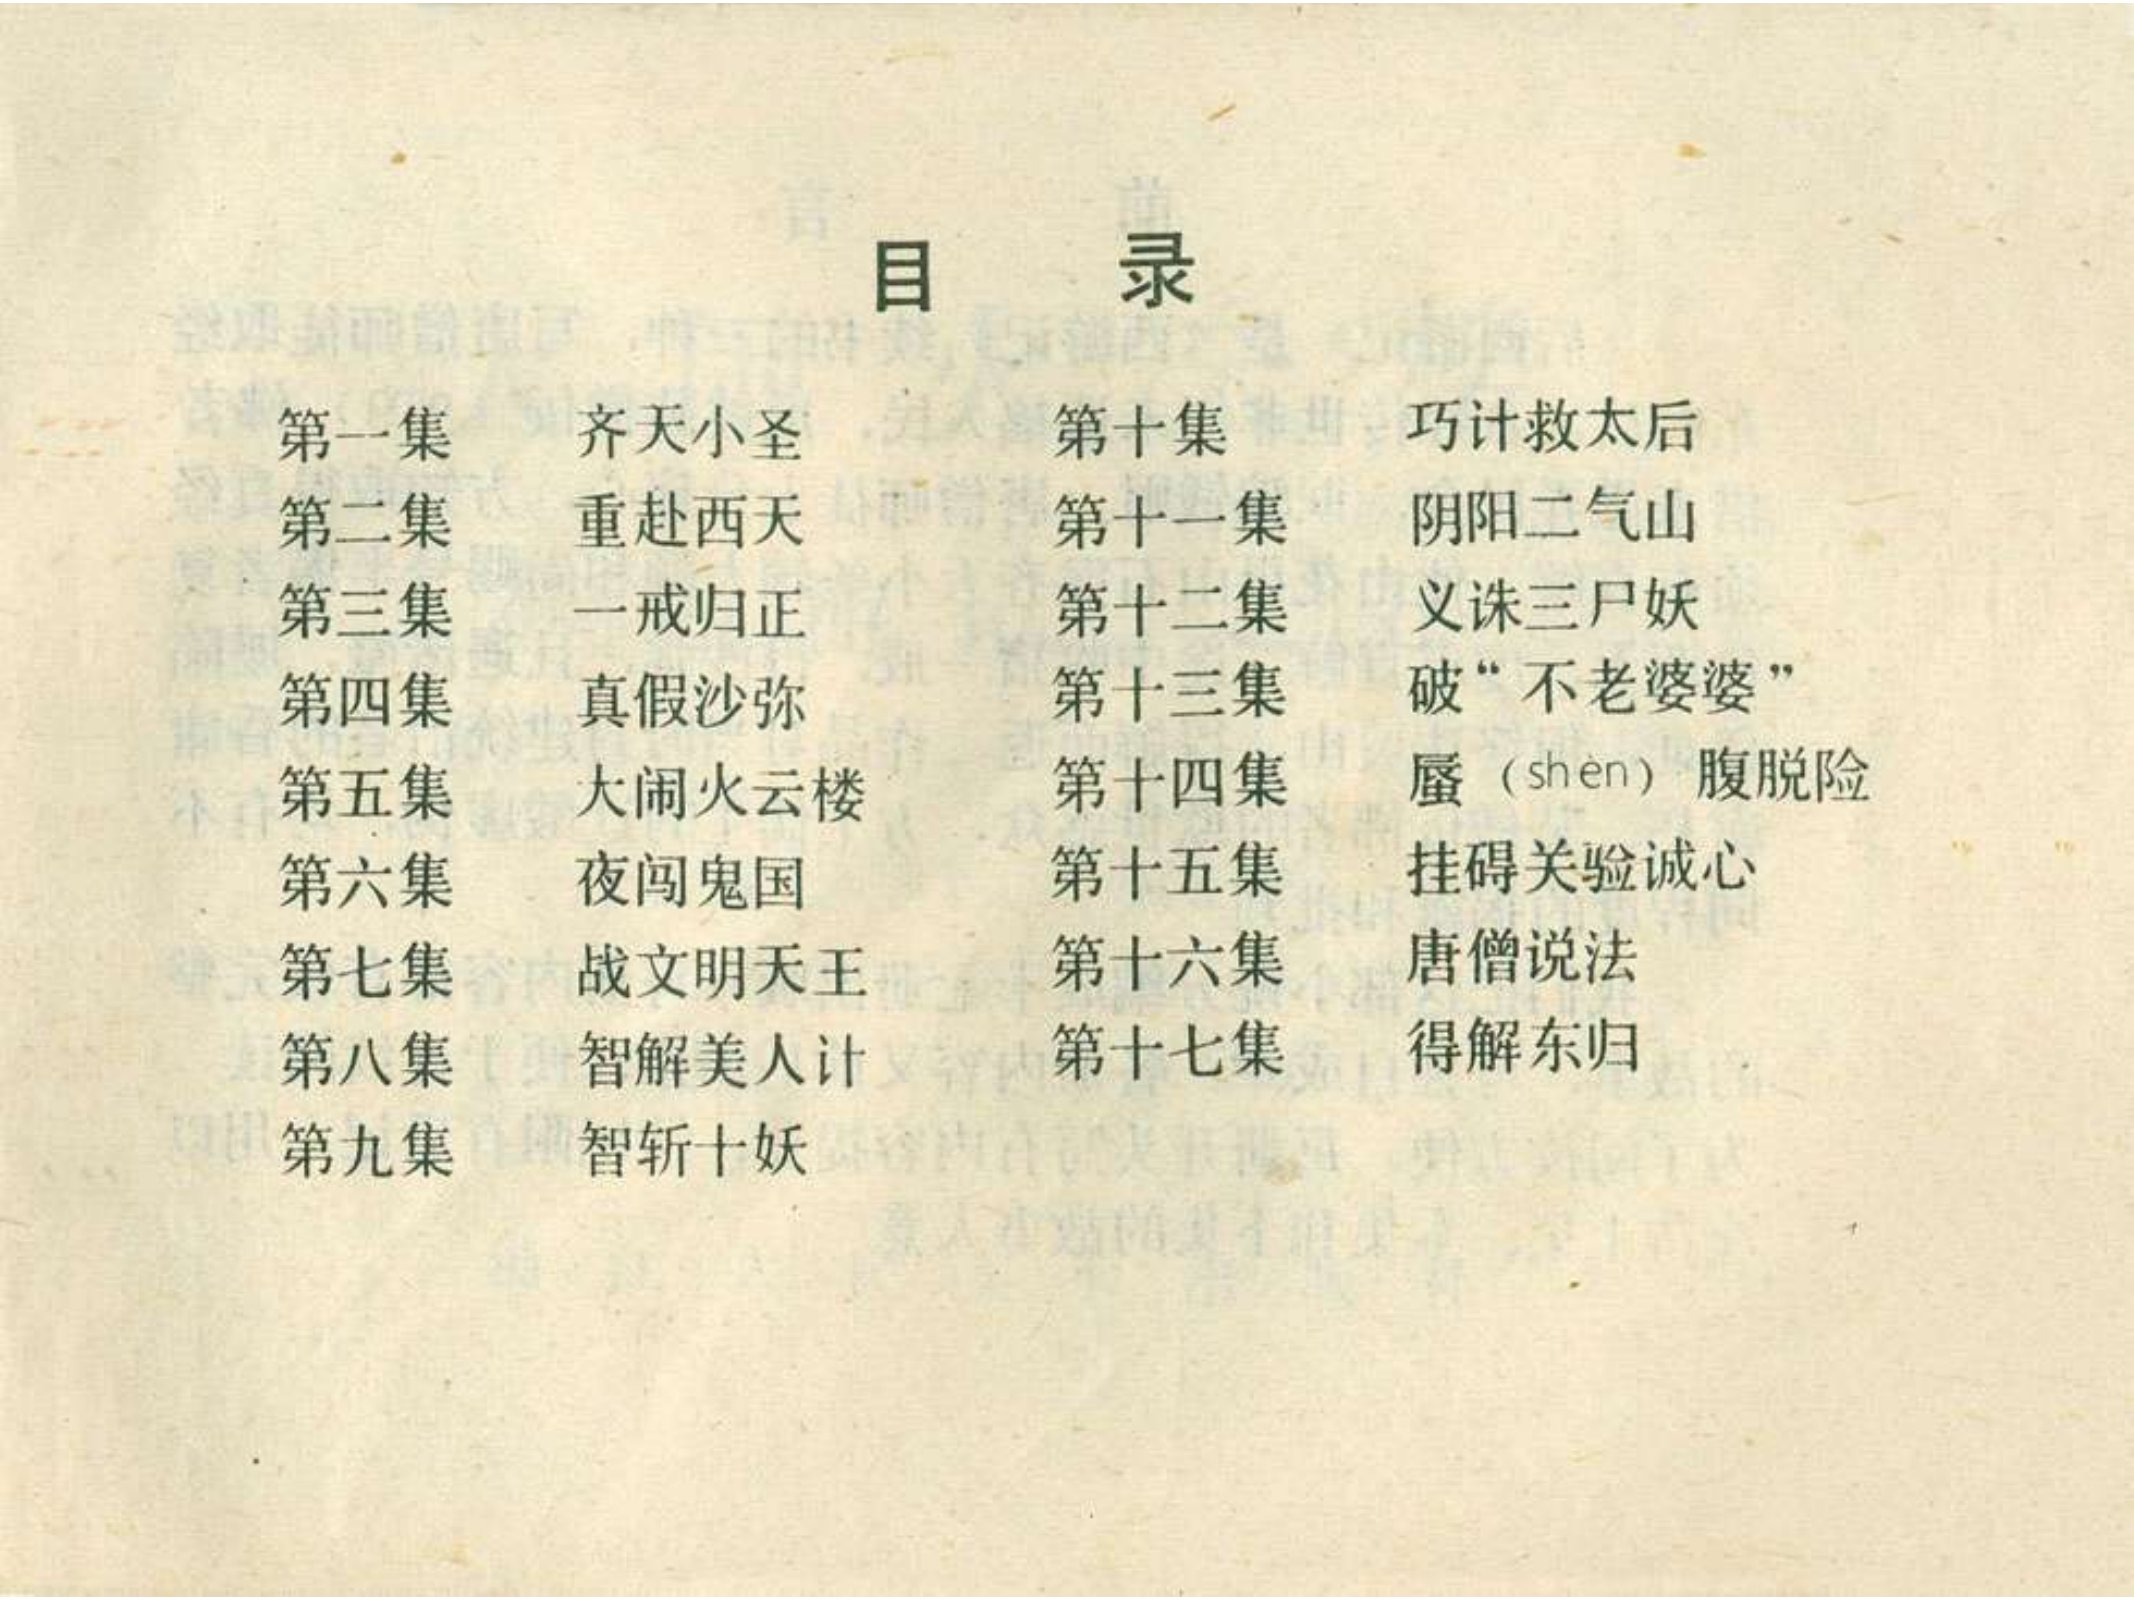 目 录
第一集 齐天小圣
第二集 重赴西天
第三集 一戒归正
第四集 真假沙弥
第五集 大闹火云楼
第六集 夜闯鬼国
第七集 战文明天王
第八集 智解美人计
第九集 智斩十妖
第十集 巧计救太后
第十一集 阴阳二气山
第十二集 义诛三尸妖
第十三集 破“不老婆婆”
第十四集 蜃（shèn）腹脱险
第十五集 挂碍关验诚心
第十六集 唐僧说法
第十七集 得解东归